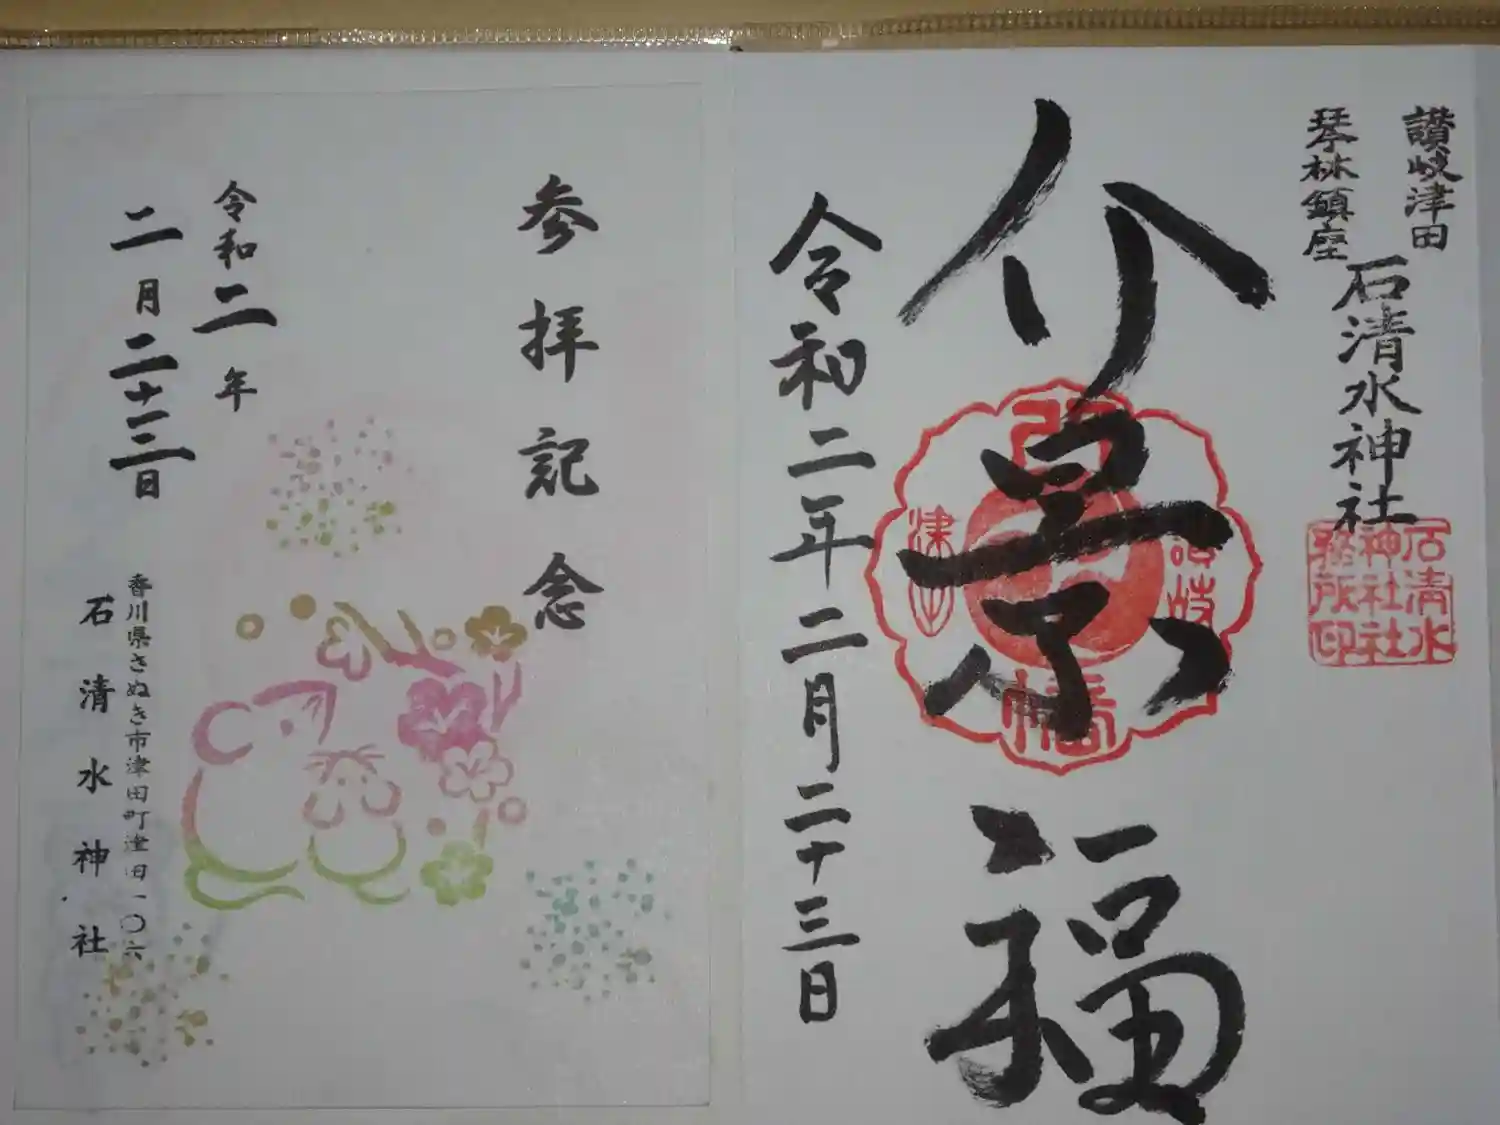 讃岐津田
琴林鎮座
石清水神社
石清水
神社社
務所印
介景福
八
幡
讃岐
津田
令和二年二月二十三日
参拝記念
令和二年
二月二十三日
香川県さぬき市津田町津田一〇六
石清水神社